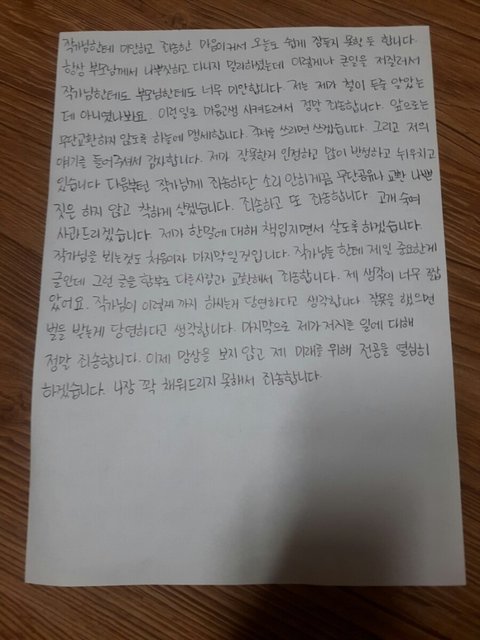 작가님한테 미안하고 죄송한 마음이 커서 오늘도 쉽게 잠들지 못할 듯 합니다.
항상 부모님께서 나쁜짓하고 다니지 말라하셨는데 이렇게나 큰일을 저질러서
작가님한테도 부모님한테도 너무 미안합니다. 저는 제가 철이 든줄 알았는
데 아니였나봐요. 이런일로 마음고생 시켜드려서 정말 죄송합니다. 앞으로는
무단교환하지 않도록 하늘에 맹세합니다. 각서를 쓰라면 쓰겠습니다. 그리고 저의
얘기를 들어주셔서 감사합니다. 제가 잘못한거 인정하고 많이 반성하고 뉘우치고
있습니다. 다음부턴 작가님께 죄송하단 소리 안하게끔 무단공유나 교환 나쁜
짓은 하지 않고 착하게 살겠습니다. 죄송하고 또 죄송합니다. 고개 숙여
사과드리겠습니다. 제가 한말에 대해 책임지면서 살도록 하겠습니다.
작가님을 뵈는것도 처음이자 마지막일것입니다. 작가님들 한테 제일 중요한게
글인데 그런 글을 함부로 다른사람과 교환해서 죄송합니다. 제 생각이 너무 짧
았어요. 작가님이 이렇게 까지 하시는게 당연하다고 생각합니다. 잘못을 했으면
벌을 받는게 당연하다고 생각합니다. 마지막으로 제가 저지른 일에 대해
정말 죄송합니다. 이제 망상을 보지 않고 제 미래를 위해 전공을 열심히
하겠습니다. 4장 꽉 채워드리지 못해서 죄송합니다.